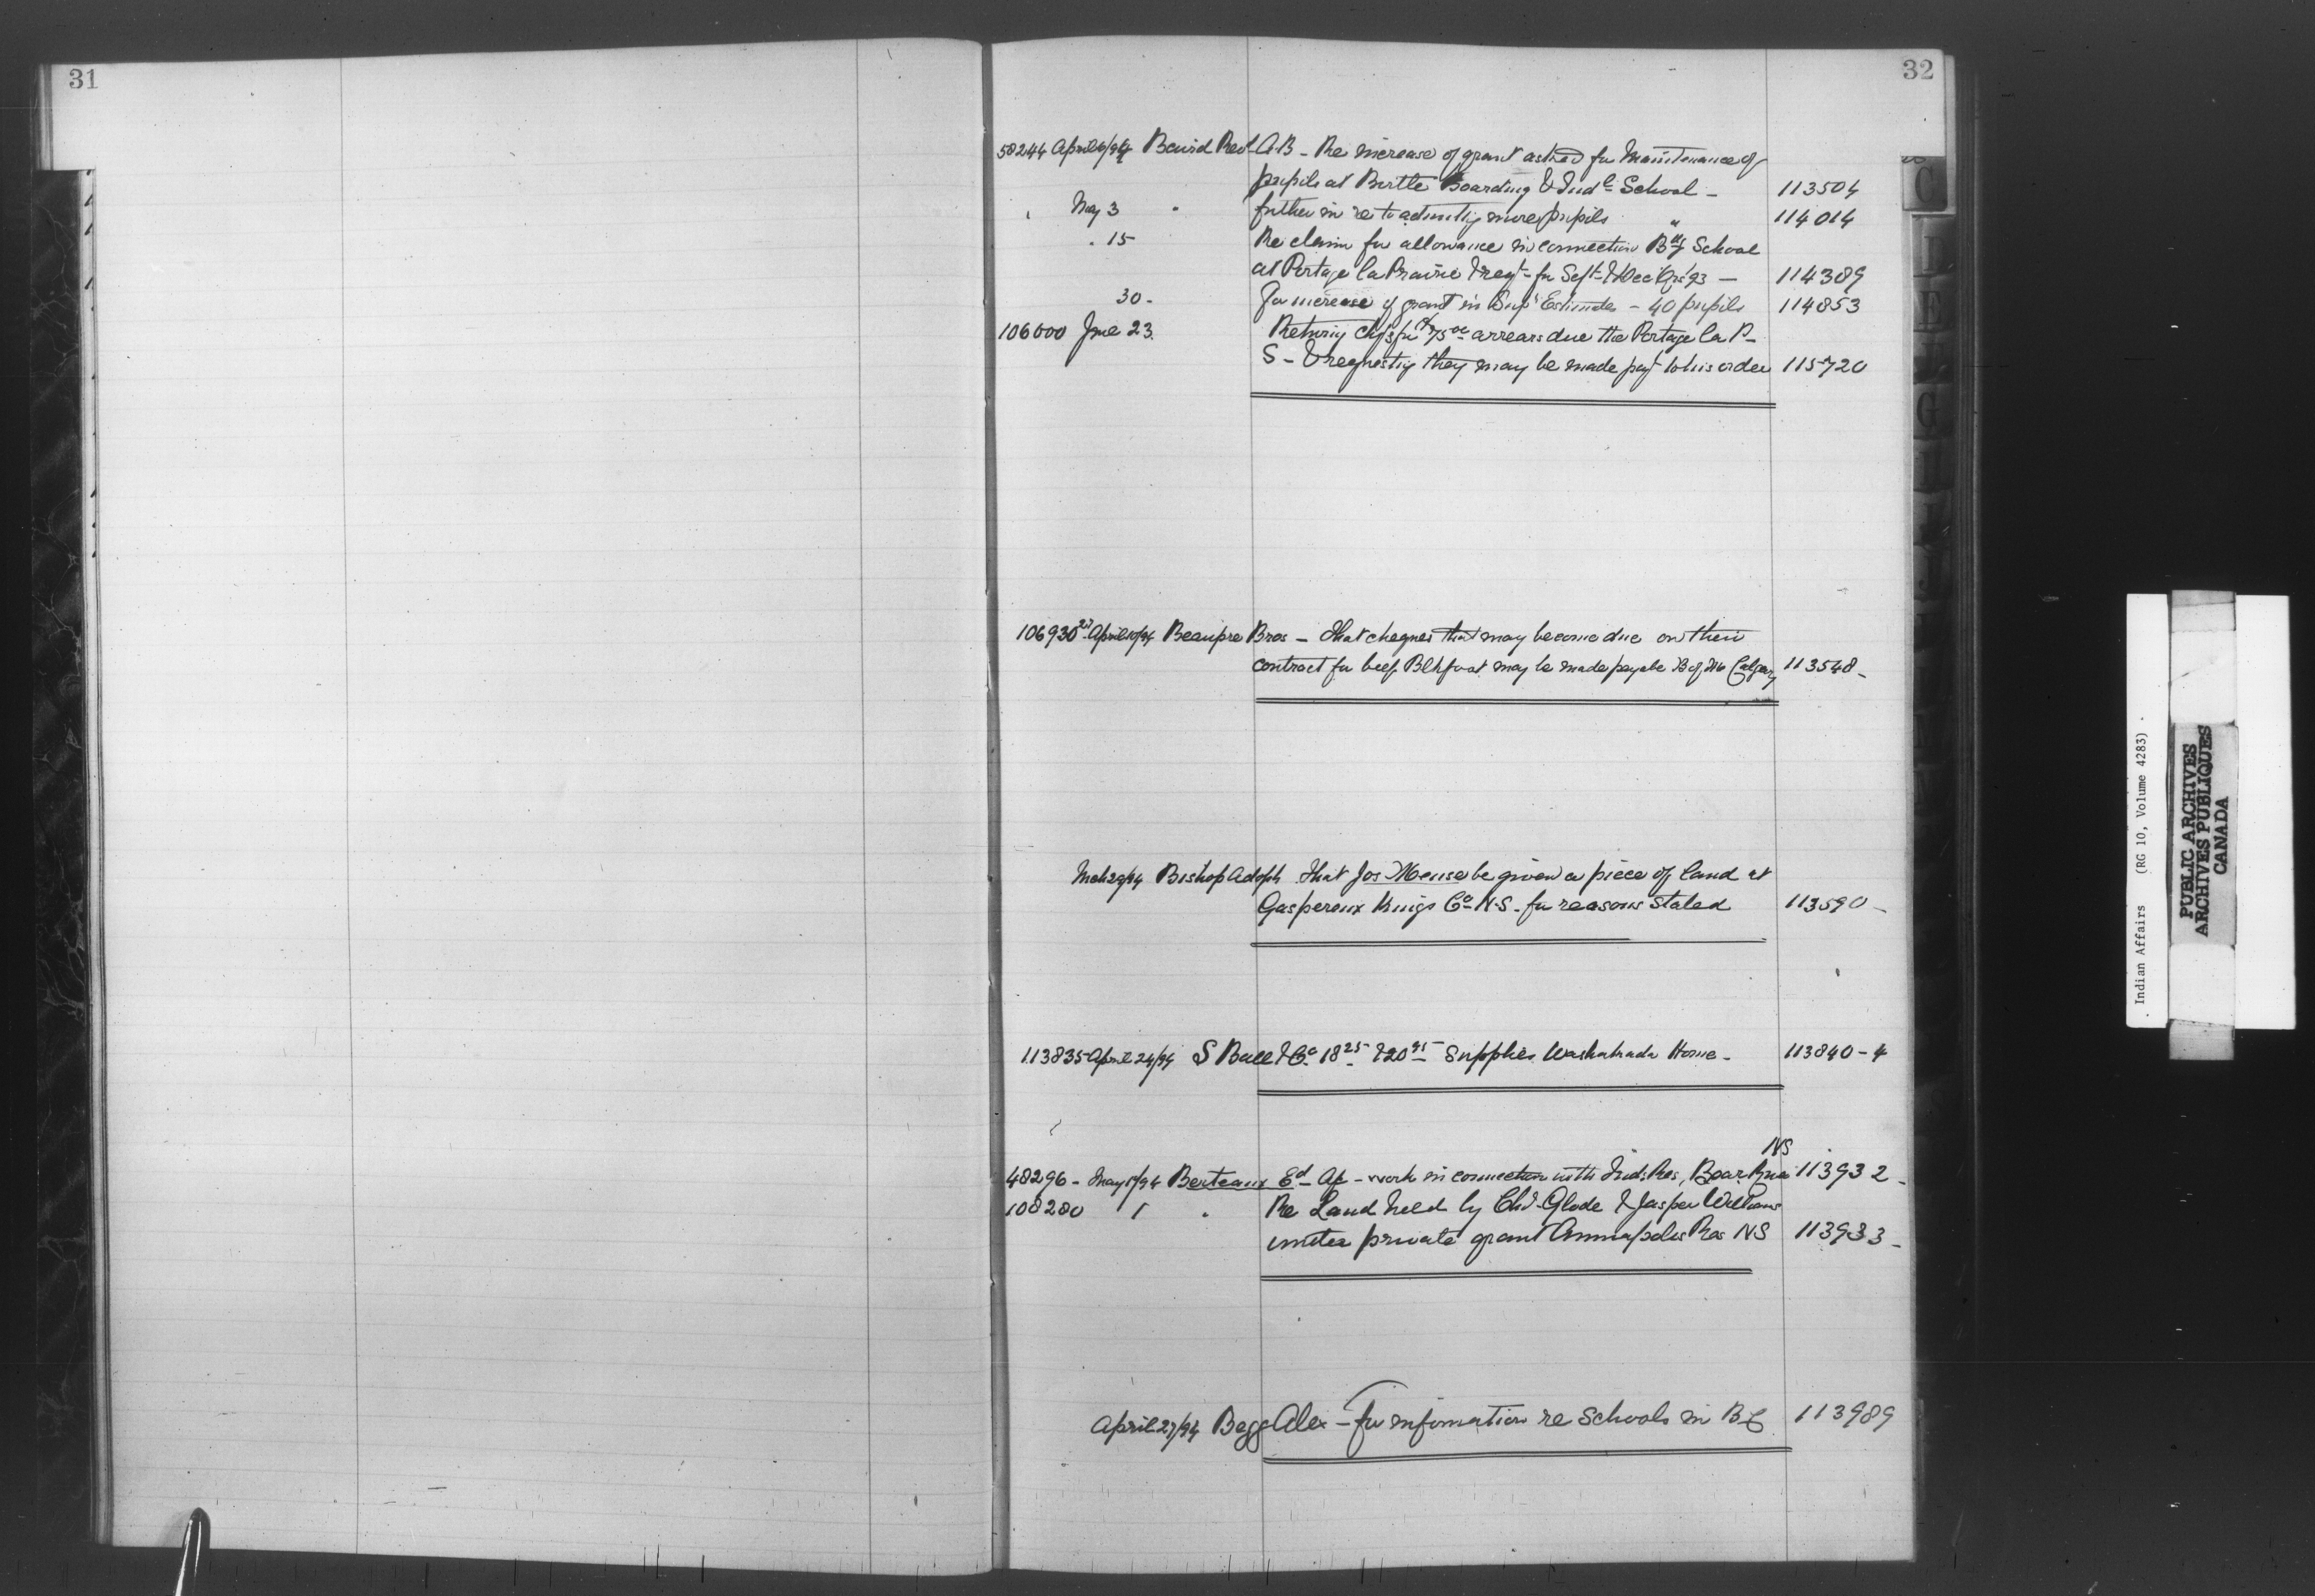 31
32
58244 April 6/94 Baird Revd A.B - Re increase of grant asked for Maintenance of
pupils at Birtle Boarding & Indl School - 113504
" May 3 " further in re to admitting more pupils " 114014
" 15 Re claim for allowance in connection Bdg School
at Portage la Prairie & reqt for Sept & Dec Qrs 93 - 114389
30 - For increase of grant in Supl Estimates - 40 pupils 114853
106000 June 23. Returning chqs for arrears due the Portage la P-
S - & requesting they may be made payt to his order 115720
106930 April 10/94 Beaupre Bros - That cheques that may become due on their
contract for beef Blkfoot may be made payable B of Calgary 113548 -
Mch 29/94 Bishop Adolph That Jos Meuse be given a piece of land at
Gaspereux Kings Co N.S. for reasons stated 113590 -
113835 April 24/94 S Ball & Co 18 25 & 20 95 Supplies Washakada Home - 113840-4
NS
48296 - May 1/94 Berteaux Ed - work in connection with Inds Res, Bear River 113932 -
108280 " " Re Land held by Chs Glode & Jasper Williams
under private grant Annapolis Res NS 113933 -
April 27/94 Begg Alex - for information re Schools in BC 113989
C
D
E
G
I
J
Indian Affairs (RG 10, Volume 4283)
PUBLIC ARCHIVES
ARCHIVES PUBLIQUES
CANADA